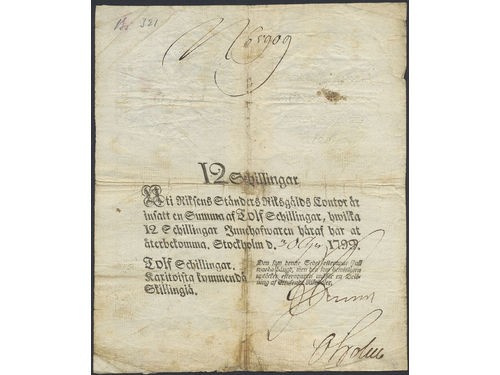 321
12 Schillingar
Uti Riksens Ständers Riksgälds Contor är
insatt en Summa af Tolf Schillingar, hwilka
12 Schillingar Innehafwaren häraf har at
återbekomma. Stockholm d. 30 1799
Tolf Schillingar.
Kaxitoista kommendä
Skillingiä.
Den som denne Sedel efterapar skall
warda hängd, men den som bewisligen
upptäcker efteraparen undfår en Belö-
ning af